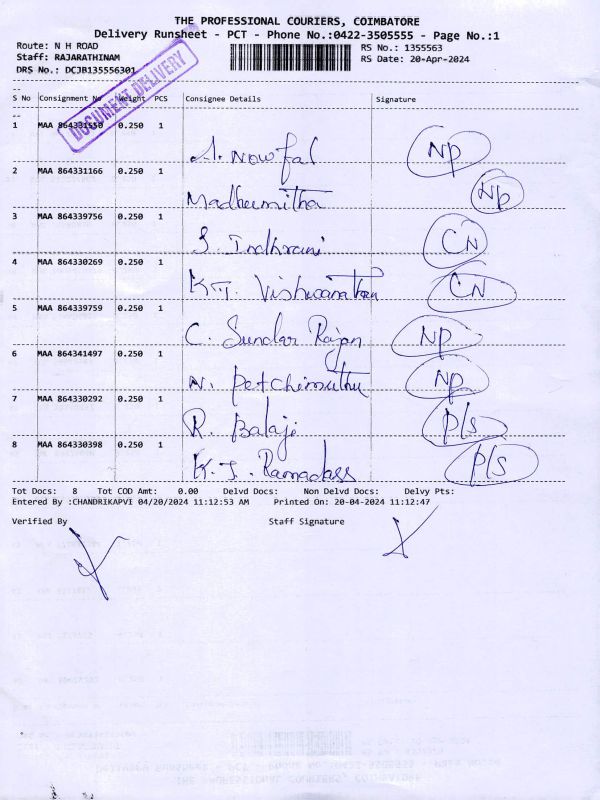 THE PROFESSIONAL COURIERS, COIMBATORE
Delivery Runsheet - PCT - Phone No.:0422-3505555 - Page No.:1
Route: N H ROAD
RS No.: 1355563
Staff: RAJARATHINAM
RS Date: 20-Apr-2024
DRS No.: DCJB135556301
DOCUMENT DELIVERY
S No Consignment No Weight PCS Consignee Details Signature
1 MAA 864331550 0.250 1 A. Nowfal NP
2 MAA 864331166 0.250 1 Madhumitha NP
3 MAA 864339756 0.250 1 S. Indhrani CN
4 MAA 864330269 0.250 1 K.T. Vishwanathan CN
5 MAA 864339759 0.250 1 C. Sundar Rajan NP
6 MAA 864341497 0.250 1 N. Petchimuthu NP
7 MAA 864330292 0.250 1 R. Balaji P/S
8 MAA 864330398 0.250 1 K.J. Ramadass P/S
Tot Docs: 8 Tot COD Amt: 0.00 Delvd Docs: Non Delvd Docs: Delvy Pts:
Entered By :CHANDRIKAPVI 04/20/2024 11:12:53 AM Printed On: 20-04-2024 11:12:47
Verified By Staff Signature